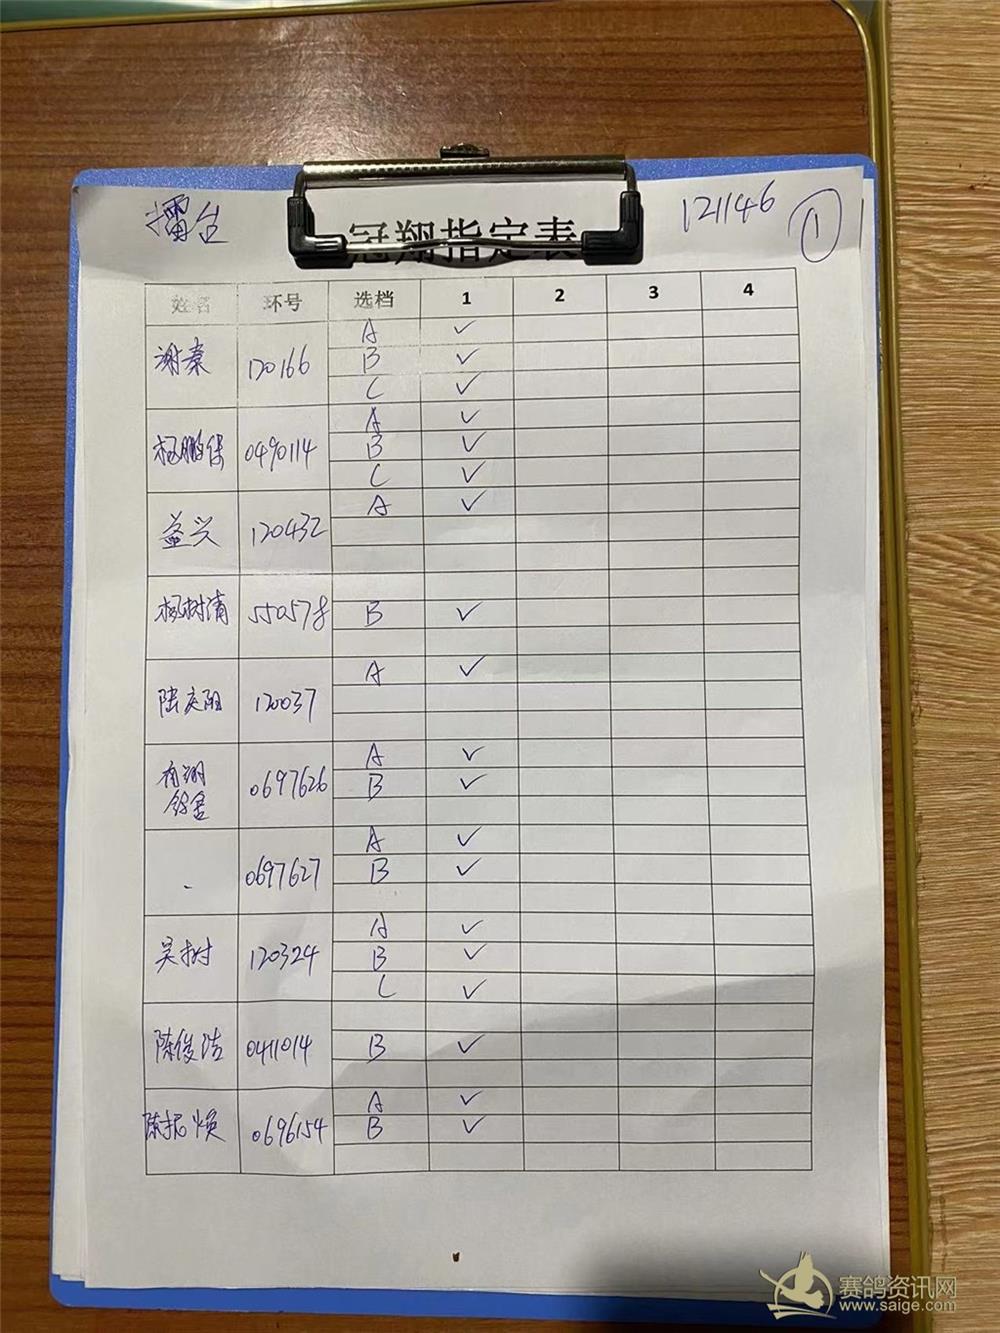 擂台 121146 ①
冠翔指定表
姓名 环号 选档 1 2 3 4
谢秦 120166 A ✓
B ✓
C ✓
杨鹏保 0490114 A ✓
B ✓
C ✓
益兴 120432 A ✓
杨树清 550578 B ✓
陆庆阳 120037 A ✓
0697626 A ✓
B ✓
0697627 A ✓
B ✓
吴树 120324 A ✓
B ✓
C ✓
陈俊洁 0411014 B ✓
陈振焕 0696154 A ✓
B ✓
赛鸽资讯网
www.saige.com